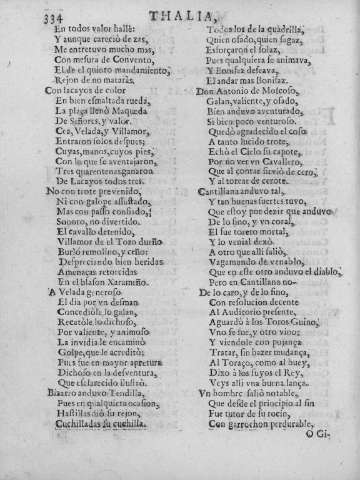 334
THALIA,
En todos valor hallè:
Y aunque careciò de zas,
Me entretuvo mucho mas,
Con mesura de Convento,
El de el quinto mandamiento,
Rejon de no mataràs.
Con lacayos de color
En bien esmaltada rueda,
La plaça llenò Maqueda
De Señores, y valor.
Cea, Velada, y Villamor,
Entraron solos despues,
Cuyas, manos, cuyos pies,
Con lo que se aventajaron,
Tres quarentenas ganaron
De Lacayos todos tres.
No con trote prevenido,
Ni con galope assustado,
Mas con passo confiado,
Sonoro, no divertido.
El cavallo detenido,
Villamor de el Tozo dueño
Burlò remolino, y ceño
Despreciando bien heridas
Amenaças retorcidas
En el blason Xarameño.
A Velada generoso
El dia por un desman
Concediòle lo galan,
Recatòle lo dichoso,
Por valiente, y animoso
La invidia le encaminò
Golpe, que le acreditò;
Pues fue en mayor apretura
Dichoso en la desventura,
Que esclarecido ilustrò.
Bizarro anduvo Tendilla,
Pues en qualquiera ocasion,
Hastillas diò su rejon,
Cuchilladas su cuchilla.
Todos los de la quadrilla,
Quien osado, quien sagaz,
Esforçaron el solaz,
Pues qualquiera se animava,
Y Bonifaz deseava,
El andar mas Bonifaz.
Don Antonio de Moscoso,
Galan, valiente, y osado,
Bien anduvo aventurado,
Si bien poco venturoso.
Quedò agradecido el coso
A tanto lucido trote,
Echò el Ciclo su capote,
Por no ver un Cavallero,
Que al contar sirviò de cero,
Y al torear de cerote.
Cantillana anduvo tal,
Y tan buenas suertes tuvo,
Que estoy por dezir que anduvo
De lo fino, y un coral,
El fue torero mortal,
Y lo venial dexò
A otro que alli saliò,
Vagamundo de venablo,
Que en este otro anduvo el diablo,
Pero en Cantillana no-
De lo caro, y de lo fino,
Con resolucion decente
Al Auditorio presente,
Aguardò à los Toros Guino,
Uno se fue, y otro vino;
Y viendole con pujança
Tratar, sin hazer mudança,
Al Toraço, como al buey,
Dixo à los suyos el Rey,
Veys alli una buena lança.
Un hombre saliò notable,
Que desde el principio al fin
Fue tutor de su rocin,
Con garrochon perdurable,
O Gi-